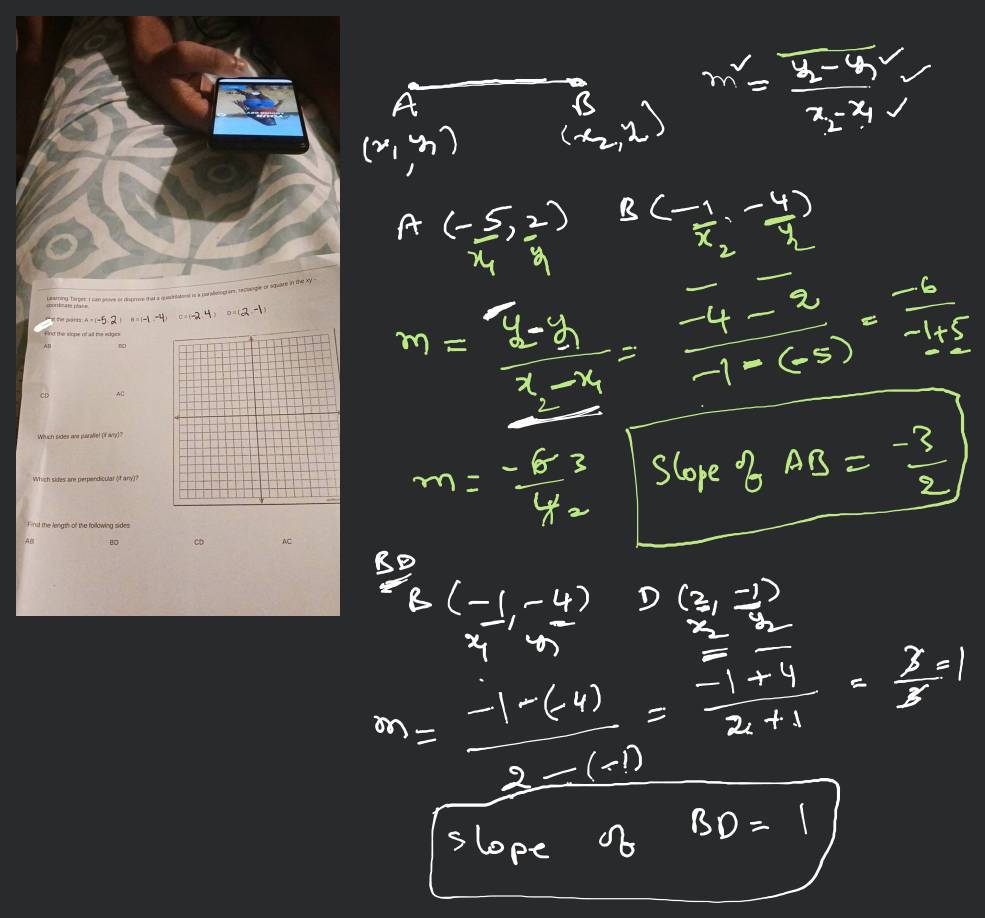 Learning Target: I can prove or disprove that a quadrilateral is a parallelogram, rectangle or square in the xy -
coordinate plane.
the points: A = (-5, 2) B = (-1, -4) C = (-2, 4) D = (2, -1)
Find the slope of all the edges
AB BD
CD AC
Which sides are parallel (if any)?
Which sides are perpendicular (if any)?
Find the length of the following sides
AB BD CD AC
A B
(x1, y1) (x2, y2)
m = y2 - y1 / x2 - x1
A (-5, 2) B (-1, -4)
x1 y1 x2 y2
m = y2 - y1 / x2 - x1 = -4 - 2 / -1 - (-5) = -6 / -1+5
m = -6 3 / 4 2
Slope of AB = -3 / 2
BD
B (-1, -4) D (2, -1)
x1 y1 x2 y2
m = -1 - (-4) / 2 - (-1) = -1 + 4 / 2 + 1 = 3 / 3 = 1
slope of BD = 1